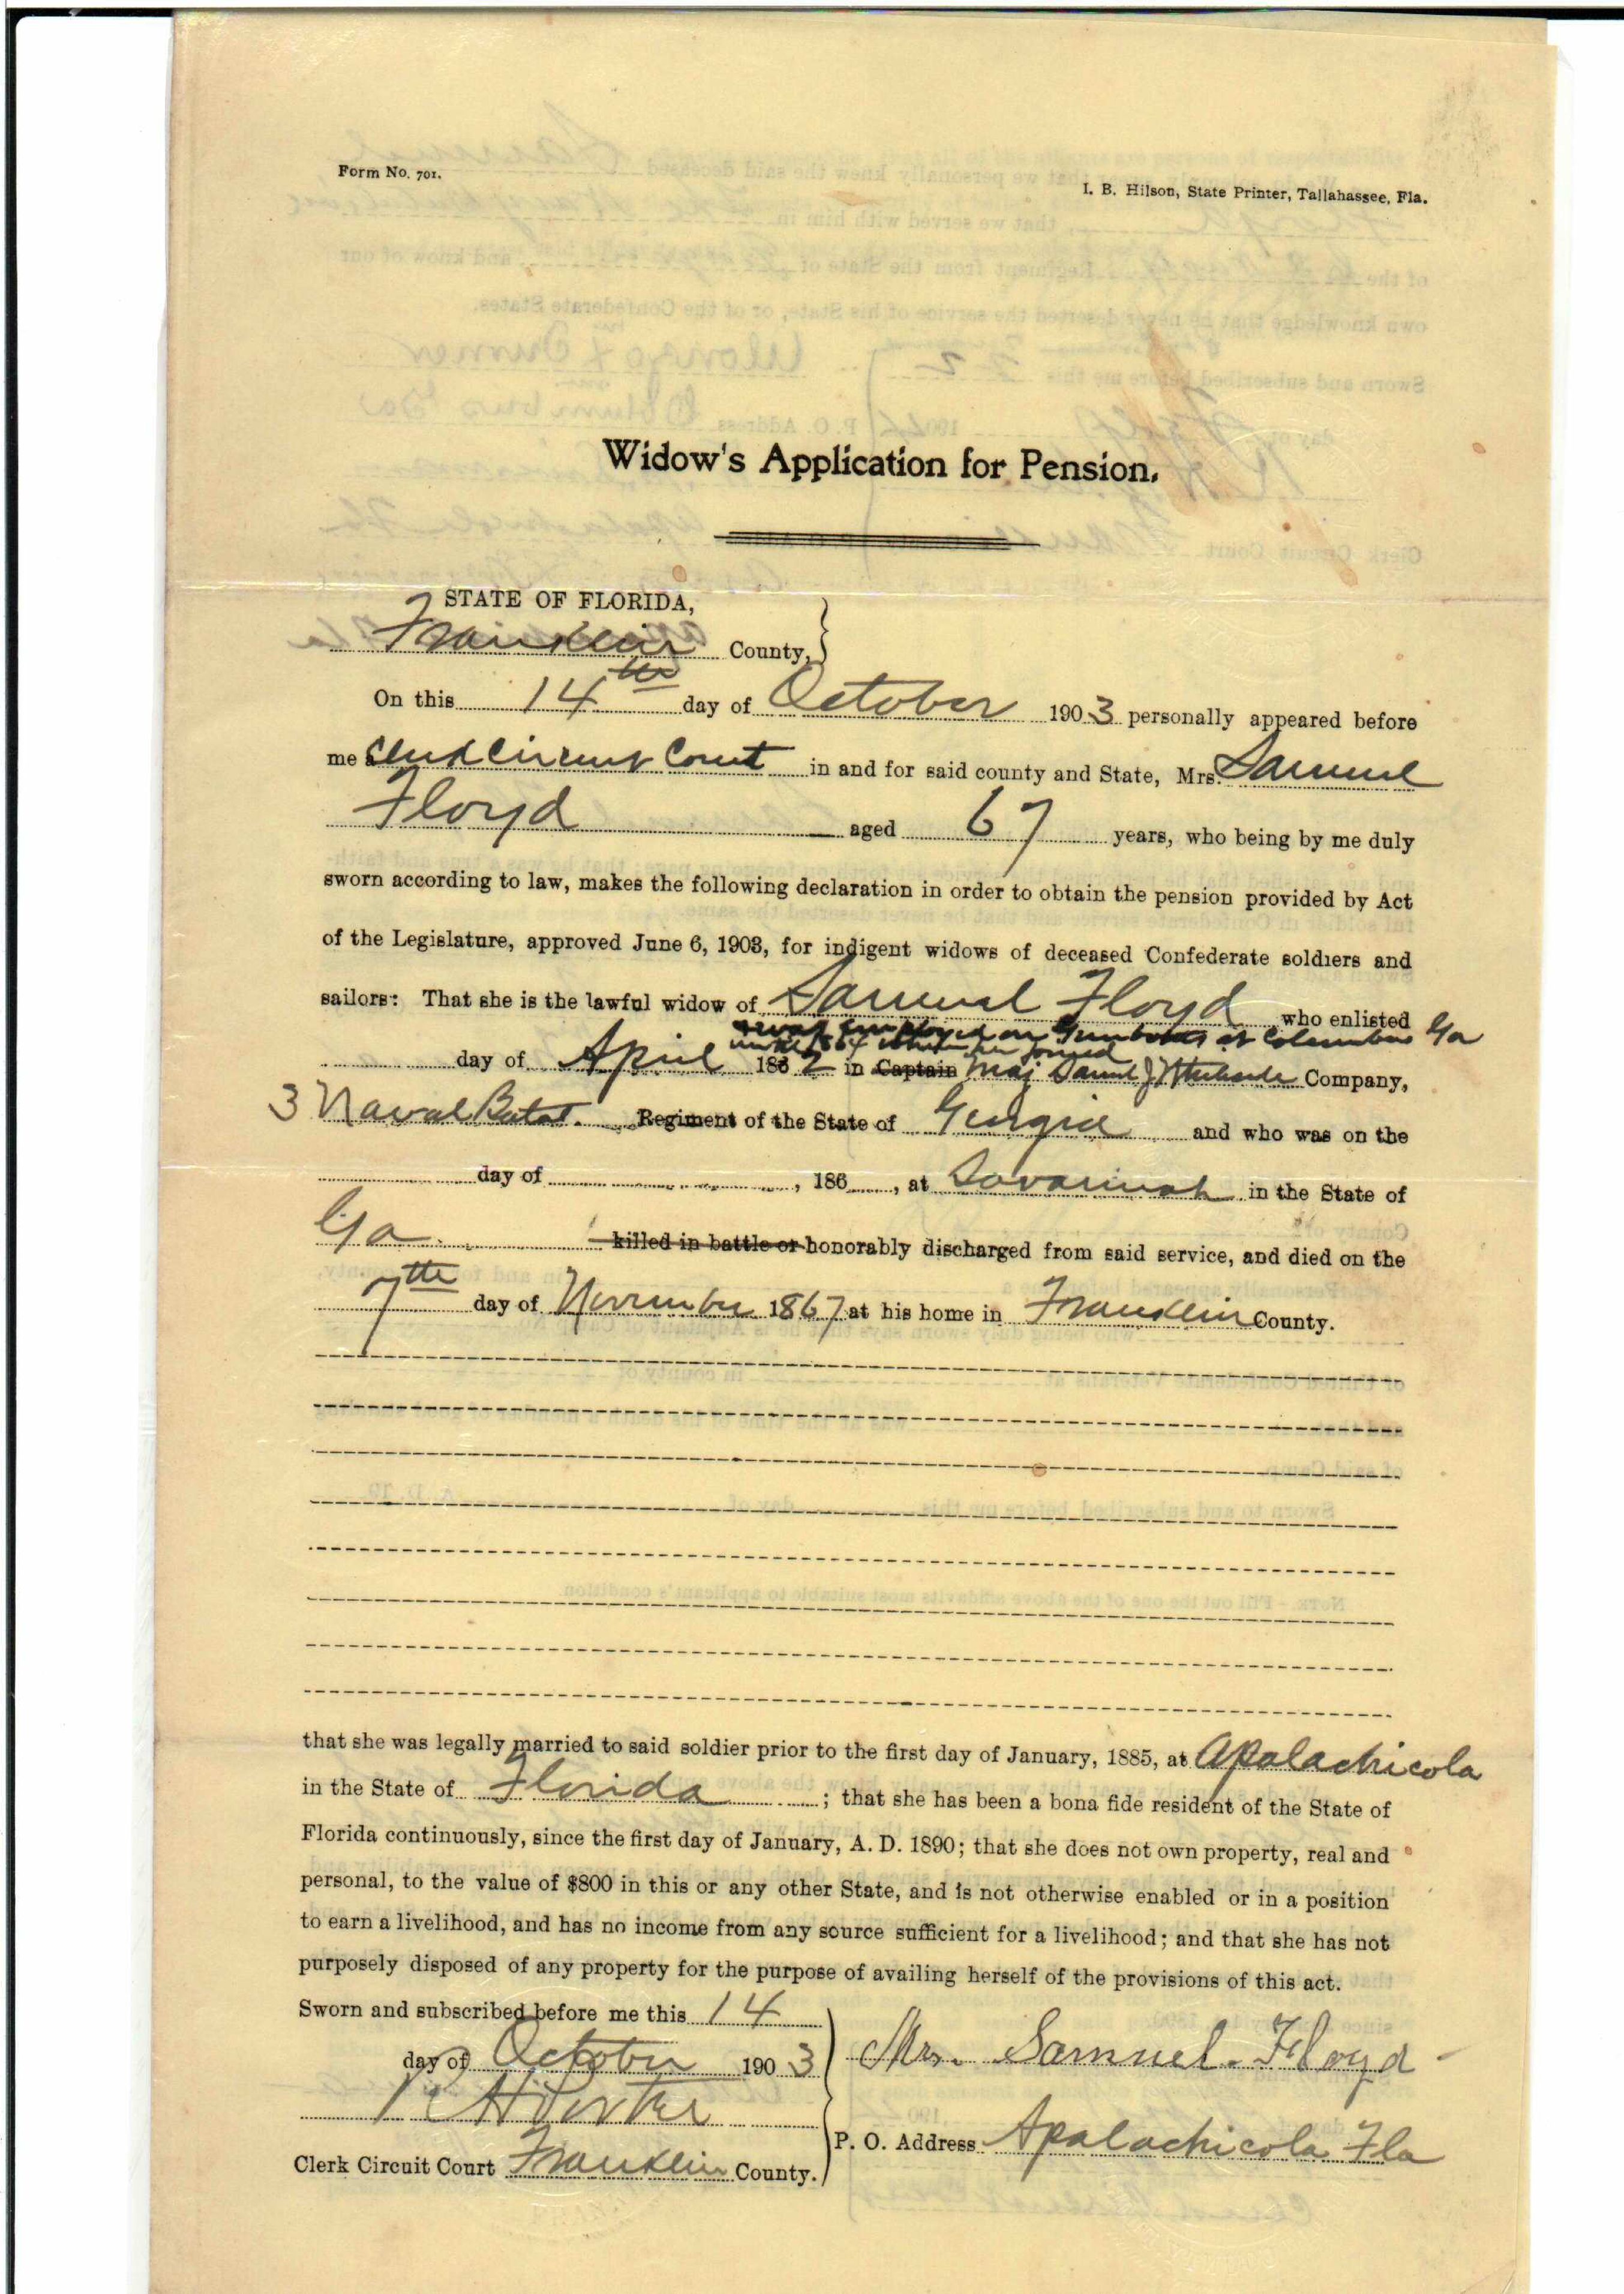 Form No. 701.
I. B. Hilson, State Printer, Tallahassee, Fla.
Widow's Application for Pension.
STATE OF FLORIDA,
Franklin County,
On this 14th day of October 1903 personally appeared before
me Clerk Circuit Court in and for said county and State, Mrs. Samuel
Floyd aged 67 years, who being by me duly
sworn according to law, makes the following declaration in order to obtain the pension provided by Act
of the Legislature, approved June 6, 1903, for indigent widows of deceased Confederate soldiers and
sailors: That she is the lawful widow of Samuel Floyd who enlisted
& was employed on Gunboats at Columbus Ga
until 1864 when he joined
day of April 1862 in Captain Maj Company,
3 Naval Batat. Regiment of the State of Georgia and who was on the
day of , 186 , at Savannah in the State of
Ga. killed in battle or honorably discharged from said service, and died on the
7th day of November 1867 at his home in Franklin County.
that she was legally married to said soldier prior to the first day of January, 1885, at Apalachicola
in the State of Florida ; that she has been a bona fide resident of the State of
Florida continuously, since the first day of January, A. D. 1890; that she does not own property, real and
personal, to the value of $800 in this or any other State, and is not otherwise enabled or in a position
to earn a livelihood, and has no income from any source sufficient for a livelihood; and that she has not
purposely disposed of any property for the purpose of availing herself of the provisions of this act.
Sworn and subscribed before me this 14
day of October 1903
Mrs. Samuel Floyd
R H Porter
P. O. Address Apalachicola Fla
Clerk Circuit Court Franklin County.